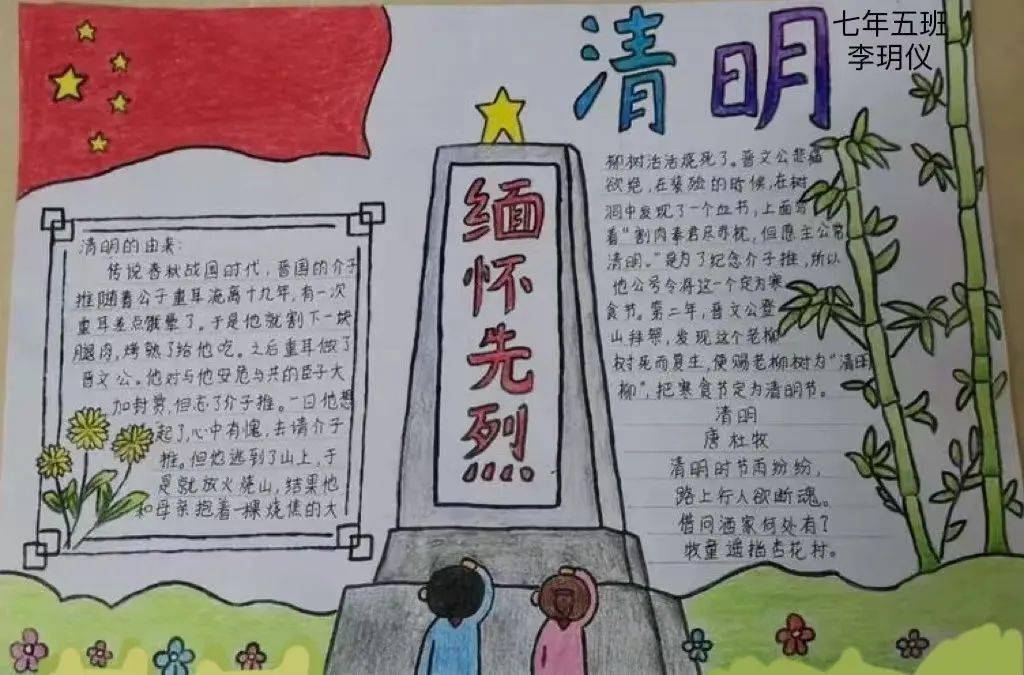 清明
七年五班
李玥仪
缅怀先烈
清明的由来:
传说春秋战国时代,晋国的介子
推随着公子重耳流离十九年,有一次
重耳差点饿晕了。于是他就割下一块
腿肉,烤熟了给他吃。之后重耳做了
晋文公。他对与他安危与共的臣子大
加封赏,但忘了介子推。一日他想
起了,心中有愧,去请介子
推。但他逃到了山上,于
是就放火烧山,结果他
和母亲抱着一棵烧焦的大
柳树活活烧死了。晋文公悲痛
欲绝,在装殓的时候,在树
洞中发现了一个血书,上面写
着“割肉奉君尽丹忱,但愿主公常
清明。”是为了纪念介子推,所以
他公号令将这一个定为寒
食节。第二年,晋文公登
山拜祭,发现这个老柳
树死而复生,便赐老柳树为“清明
柳”,把寒食节定为清明节。
清明
唐 杜牧
清明时节雨纷纷,
路上行人欲断魂。
借问酒家何处有?
牧童遥指杏花村。